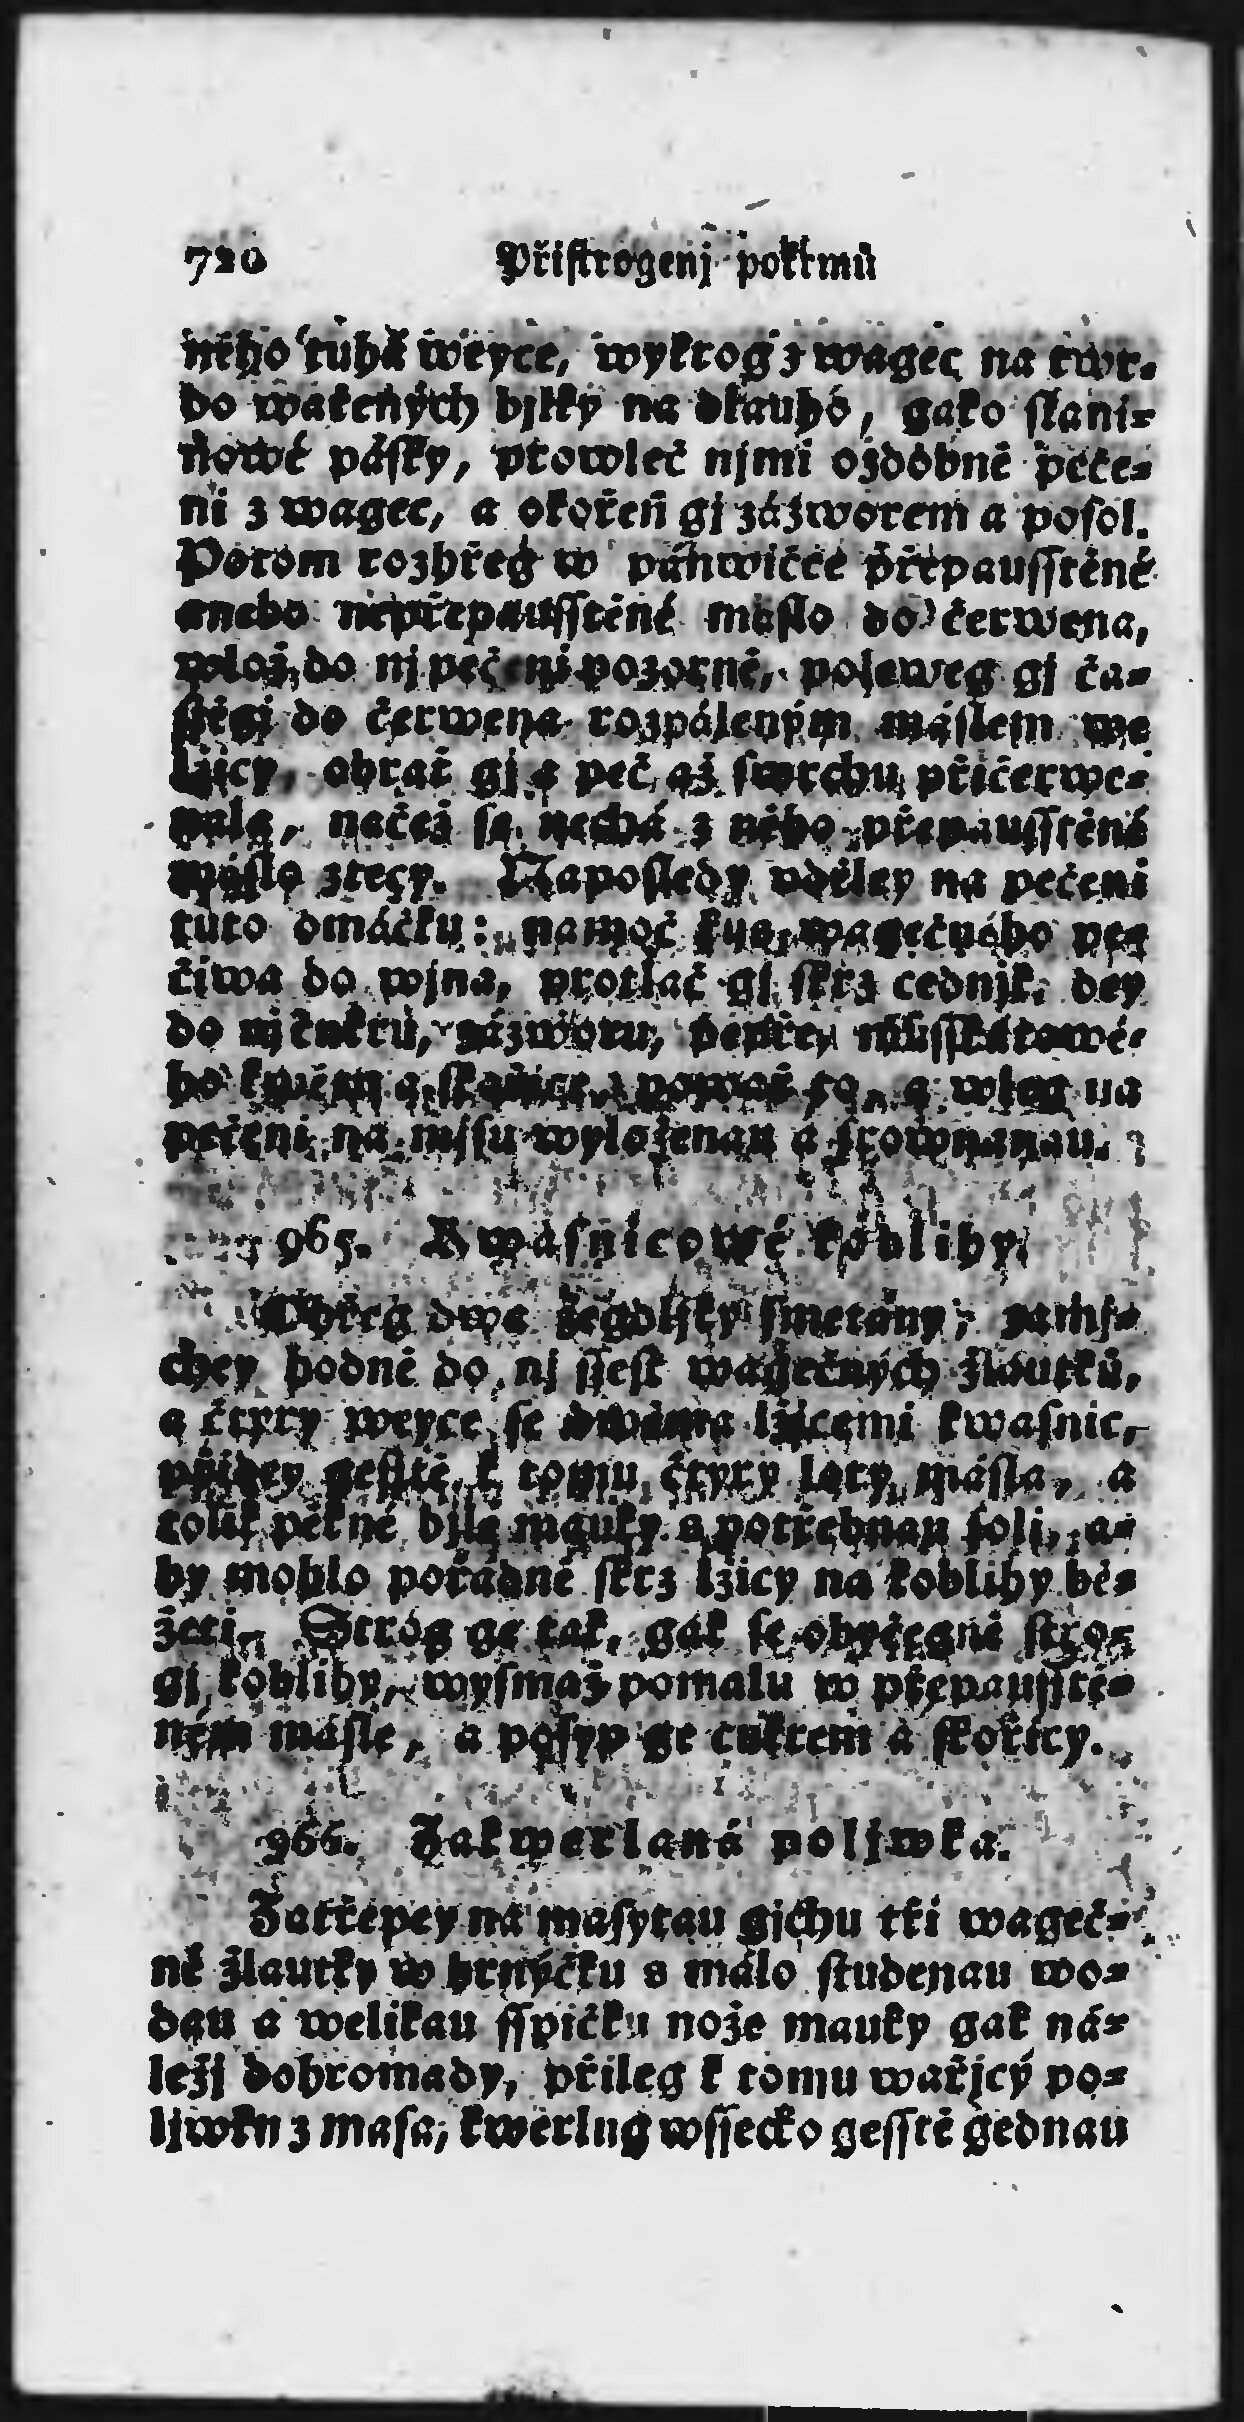 720 Přistrogenj pokrmů
něho tuhá weyce, wykrog z wagec na twr-
do wařených bjlky na dlauhó, gako slani-
nowé pásky, prowleč njmi ozdobně peče-
ni z wagec, a okořeň gi zázworem a posol.
Potom rozhřeg w pánwičce přepausstěné
anebo nepřepausstěné máslo do čerwena,
wlož do nj pečeni pozorně, poleweg gi ča-
stěgi do čerwena rozpáleným máslem we
lžicy, obrač gi a peč až swrchu přičerwe-
nala, načež se nechá z něho přepausstěné
máslo ztecy. Naposledy vděley na pečeni
tuto omáčku: namoč kus wagečného pe-
čiwa do wjna, protlač gi skrz cednjk, dey
do nj cukru, zázworu, pepře, musskátowé-
ho kwětu a skořice, powař to, a wleg na
pečeni na mjsu wyloženau a srownanau.
965. Kwasnicowé koblihy.
Ohřeg dwa žegdljky smetany, zamj-
chey hodně do nj ssest wagečných žlautků,
a čtyry weyce se dwěma lžicemi kwasnic,
přidey gesstě k tomu čtyry loty másla, a
tolik pěkné bjlé mauky a potřebnau soli, a-
by mohlo pořádně skrz lžicy na koblihy bě-
žeti. Strog ge tak, gak se obyčegně stro-
gj koblihy, wysmaž pomalu w přepausstě-
ném másle, a posyp ge cukrem a skořicy.
966. Zakwerlaná poljwka.
Zatřepey na masytau gjchu tři wageč-
ně žlautky w hrnýčku s málo studenau wo-
dau a welikau sspičku nože mauky gak ná-
ležj dohromady, přileg k tomu wařjcý po-
ljwku z masa, kwerlug wssecko gesstě gednau